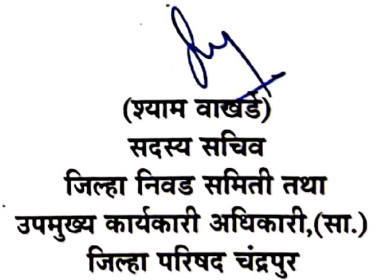 (श्याम वाखर्डे)
सदस्य सचिव
जिल्हा निवड समिती तथा
उपमुख्य कार्यकारी अधिकारी,(सा.)
जिल्हा परिषद चंद्रपुर